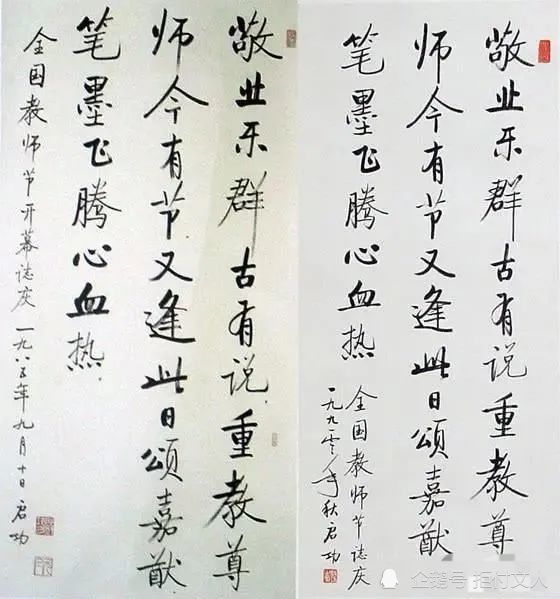 敬业乐群古有说重教尊
师今有节又逢此日颂嘉猷
笔墨飞腾心血热
全国教师节开幕志庆 一九八五年九月十日 启功
敬业乐群古有说重教尊
师今有节又逢此日颂嘉猷
笔墨飞腾心血热
全国教师节志庆
一九九〇年秋 启功
企鹅号 指付文人